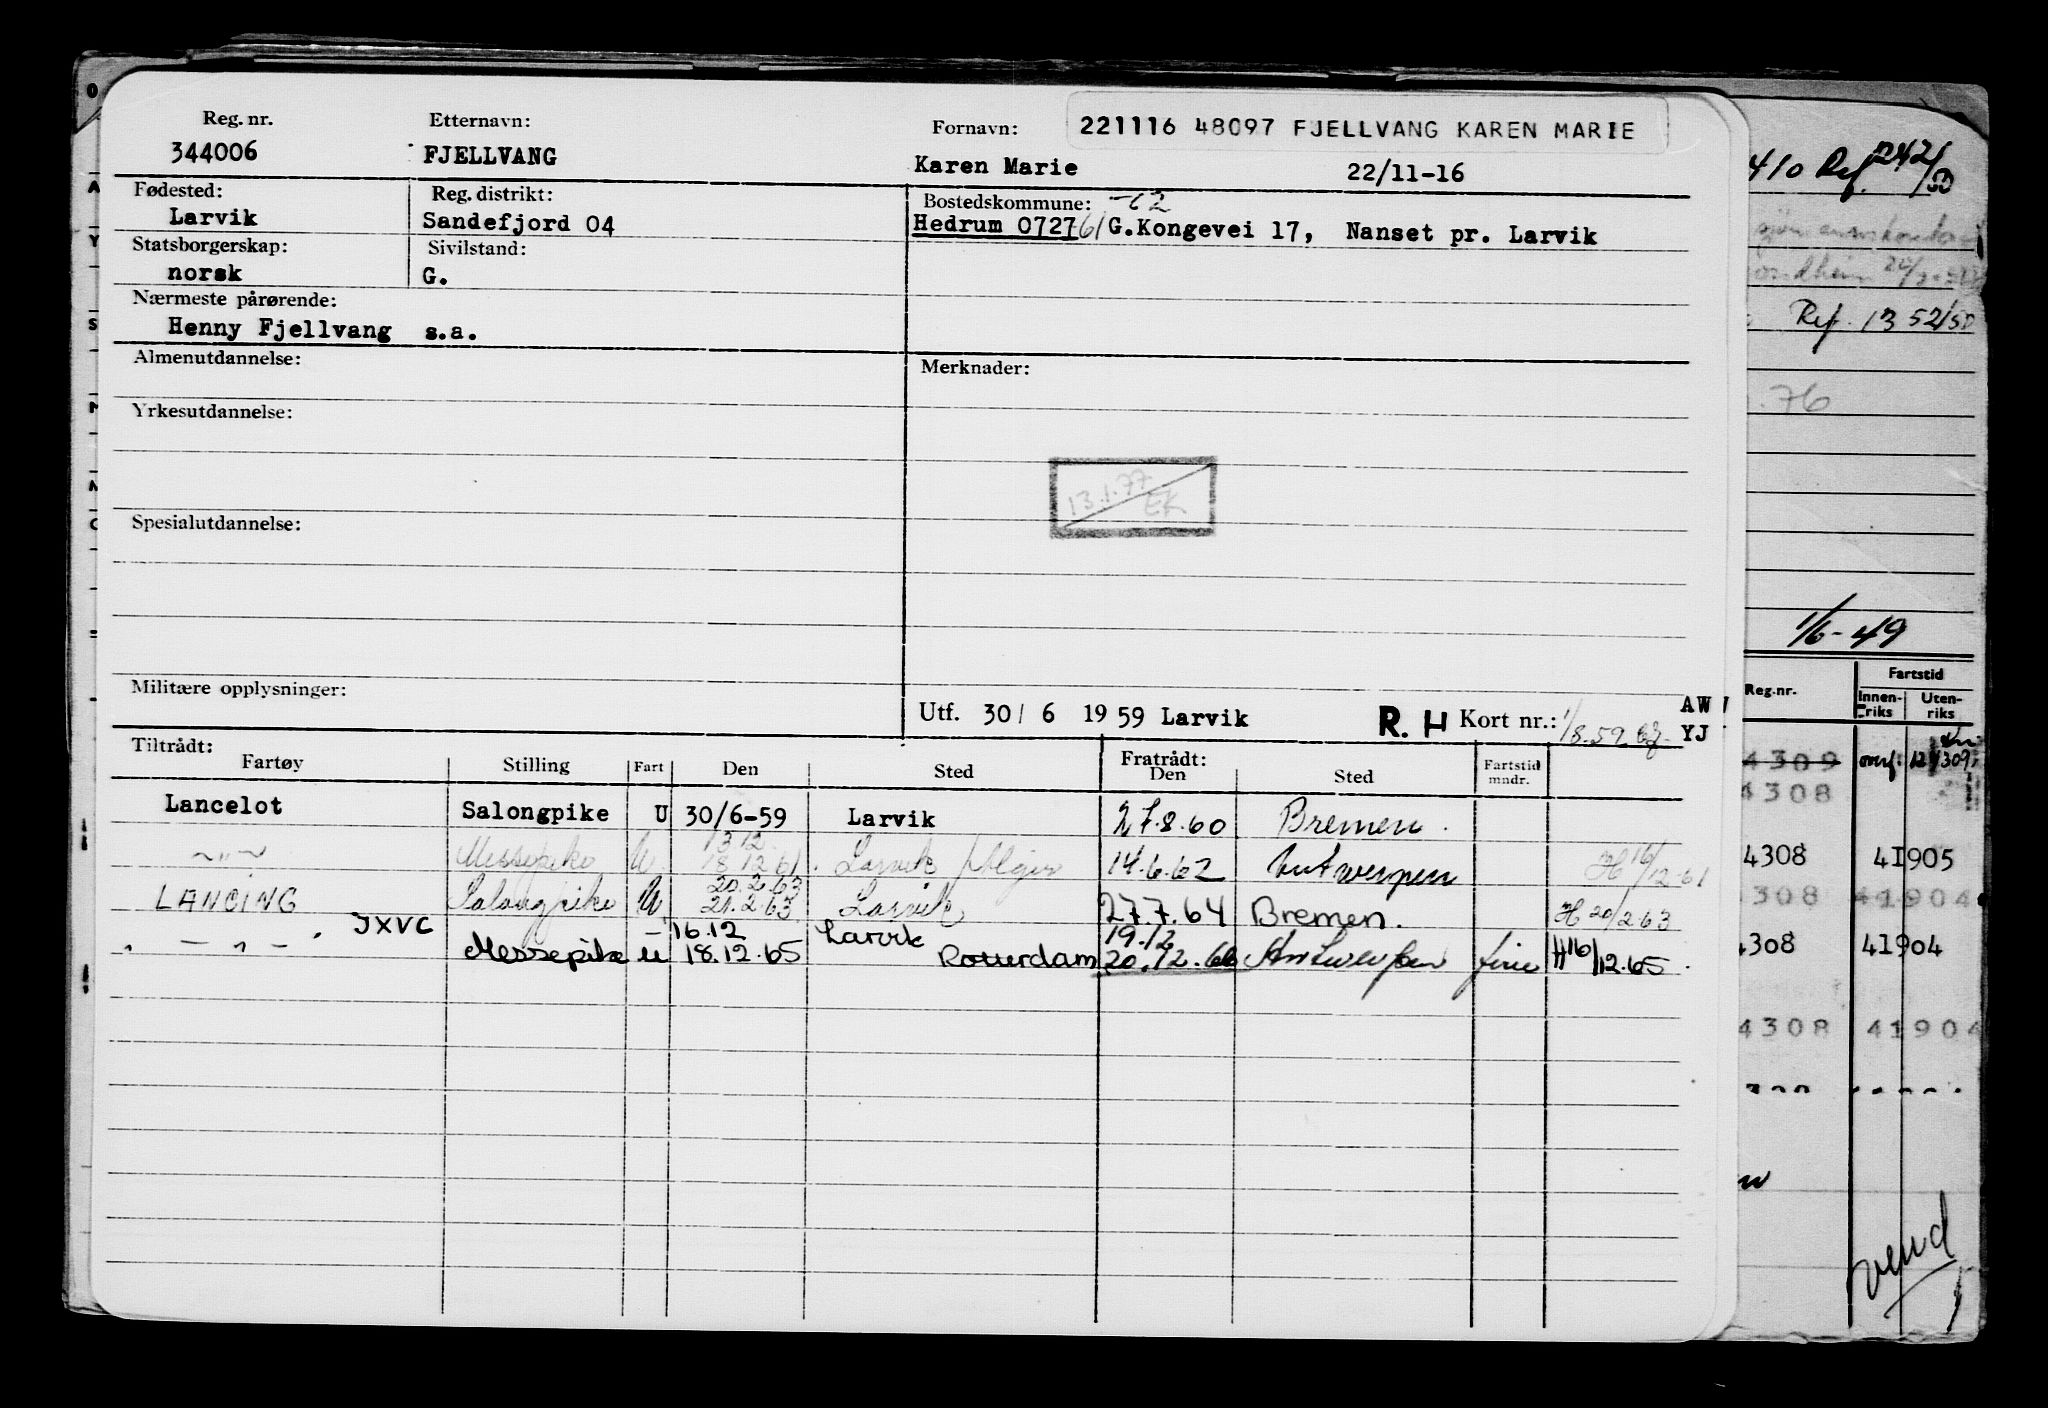 Reg. nr. Etternavn: Fornavn: 221116 48097 FJELLVANG KAREN MARIE
344006 FJELLVANG Karen Marie 22/11-16
Fødested: Reg. distrikt: Bostedskommune: -62
Larvik Sandefjord 04 Hedrum 0727 61 G.Kongevei 17, Nanset pr. Larvik
Statsborgerskap: Sivilstand:
norsk G.
Nærmeste pårørende:
Henny Fjellvang s.a.
Almenutdannelse: Merknader:
Yrkesutdannelse:
13.1.77
EK
Spesialutdannelse:
Militære opplysninger:
Utf. 30/ 6 1959 Larvik R. H Kort nr.: 1/8.59
AW
YJ
Tiltrådt: Fratrådt:
Fartøy Stilling Fart Den Sted Den Sted Fartstid mndr.
Lancelot Salongpike U 30/6-59 Larvik 27.8.60 Bremen.
13.12
~"~ Messepike U 18.12.61. Larvik 14.6.62 Antwerpen H 16/12.61
20.2.63
LANCING Salongpike U 21.2.63 Larvik 27.7.64 Bremen. H 20/2.63
JXVC 16.12 Larvik 19.12
" — " — Messepike U 18.12.65 Rotterdam 20.12.66 Antwerpen H16/12.65.
410 Ref. 242/50
Ref. 1352/50
.76
1/6-49
Reg.nr. Fartstid
Innen-riks Uten-riks
4309 overf:
4308
4308 41905
4308 41904
4308 41904
4308 41904
vend